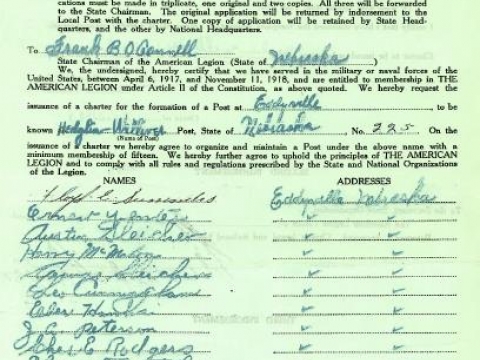 cations must be made in triplicate, one original and two copies. All three will be forwarded
to the State Chairman. The original application will be returned by indorsement to the
Local Post with the charter. One copy of application will be retained by State Head-
quarters, and the other by National Headquarters.
To Frank B. O'Connell
State Chairman of the American Legion (State of Nebraska )
We, the undersigned, hereby certify that we have served in the military or naval forces of the
United States, between April 6, 1917, and November 11, 1918, and are entitled to membership in THE
AMERICAN LEGION under Article II of the Constitution, as above quoted. We hereby request the
issuance of a charter for the formation of a Post at Eddyville to be
known Post, State of Nebraska, No. 225 On the
(Name of Post)
issuance of charter we hereby agree to organize and maintain a Post under the above name with a
minimum membership of fifteen. We hereby further agree to uphold the principles of THE AMERICAN
LEGION and to comply with all rules and regulations prescribed by the State and National Organizations
of the Legion.
NAMES ADDRESSES
Floyd C. Eddyville Nebraska
Ernest
Austin
Harry McMahon
Leo Cunningham
J. A. Peterson
E Rodgers